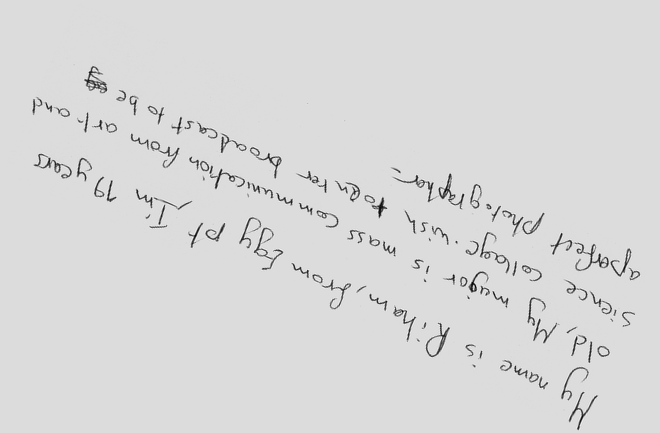 My name is Riham, from Egypt I'm 19 years
old, My major is mass communication from art and
sience collage. wish to enter broadcast to be
a perfect photographer.